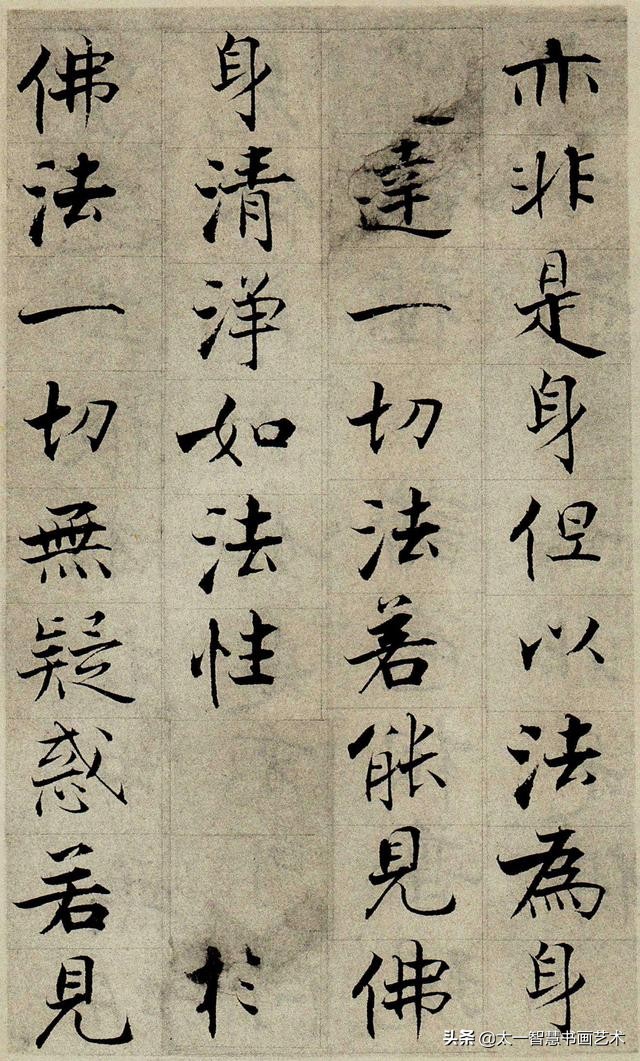 亦非是身但以法為身
達一切法若能見佛
身清淨如法性於
佛法一切無疑惑若見
头条 @太一智慧书画艺术